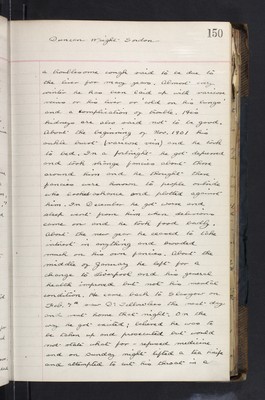 Duncan Wright Borlan
150
a troublesome cough said to be due to
the liver for many years. Almost every
winter he has been laid up with varicose
veins or his liver or "cold in his lungs"
and a complication of trouble. His
kidneys are also said not to be good.
About the beginning of Nov. 1901 his
ankle burst (varicose vein) and he took
to bed. In a fortnight he got depressed
and took strange fancies about those
around him and he thought these
fancies were known to people outside
who plotted against
him. In December he got worse and
sleep went from him when delirious
came on and he took food badly.
About the new year he ceased to take
interest in anything and brooded
much on his own fancies. About the
middle of January he left for a
change to and his general
health improved but not his mental
condition. He came back to Glasgow on
Feb. 7th saw Dr. the next day
and went home that night. On the
way he got excited, believed he was to
be taken up and prosecuted but would
not state what for - refused medicine
and on Sunday night lifted a tea knife
and attempted to cut his throat in a